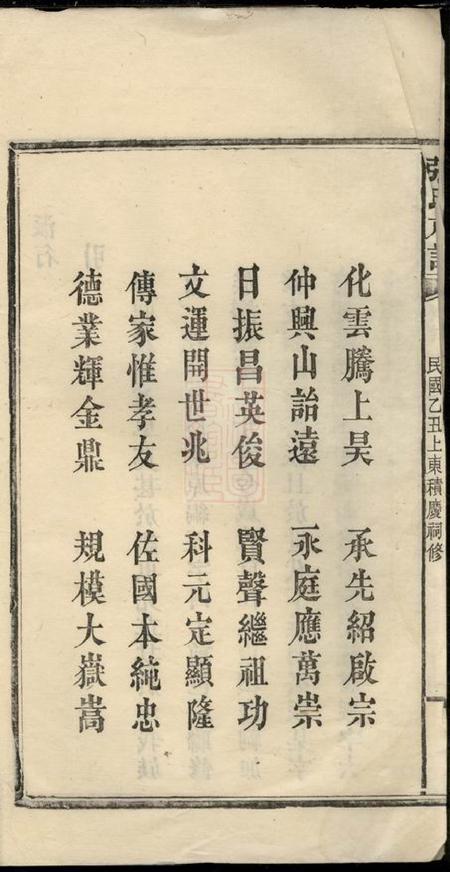 張氏六譜
民國乙丑上東積慶祠修
化雲騰上昊 承先紹啟宗
仲興山詒遠 永庭應萬崇
日振昌英俊 賢聲繼祖功
文運開世兆 科元定顯隆
傳家惟孝友 佐國本純忠
德業輝金鼎 規模大嶽嵩